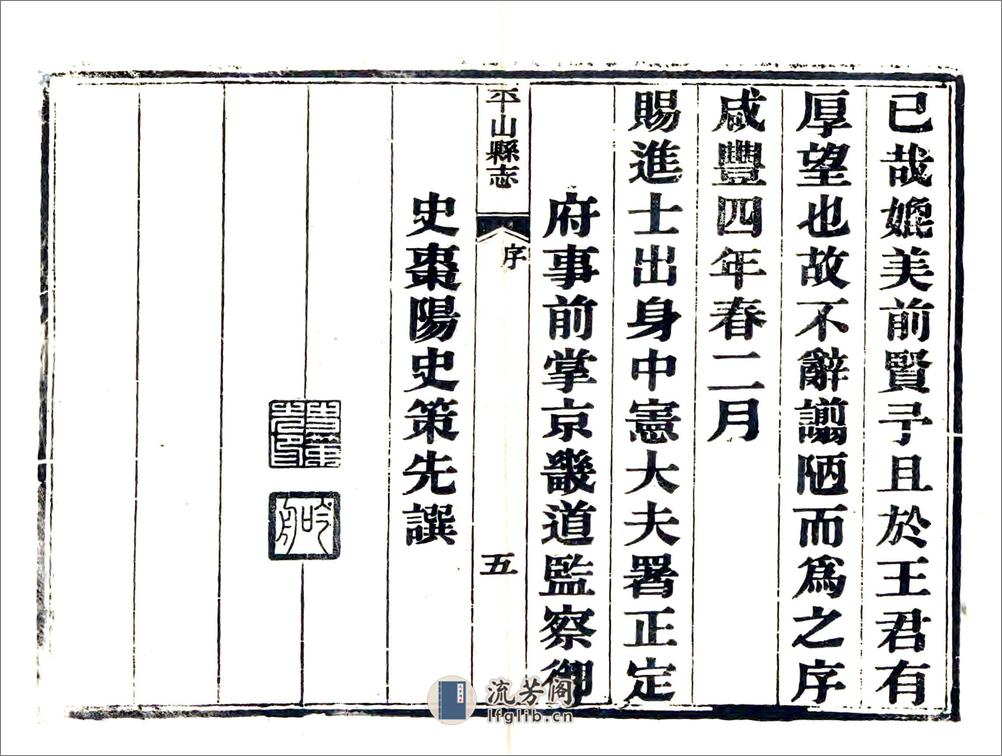 已哉媲美前賢予且於王君有
厚望也故不辭譾陋而為之序
咸豐四年春二月
賜進士出身中憲大夫署正定
府事前掌京畿道監察御
平山縣志
序
五
史棗陽史策先譔
流芳阁
lfglib.cn